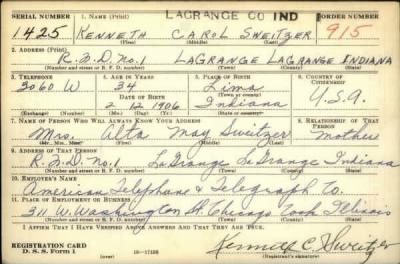 LAGRANGE CO IND
SERIAL NUMBER 1. NAME (Print) ORDER NUMBER
1425 KENNETH CAROL SWEITZER 915
(First) (Middle) (Last)
2. ADDRESS (Print)
R.F.D. No. 1 LAGRANGE LAGRANGE INDIANA
(Number and street or R. F. D. number) (Town) (County) (State)
3. TELEPHONE 4. AGE IN YEARS 5. PLACE OF BIRTH 6. COUNTRY OF CITIZENSHIP
3060 W 34 Lima
DATE OF BIRTH (Town or county)
2 12 1906 Indiana U.S.A.
(Exchange) (Number) (Mo.) (Day) (Yr.) (State or country)
7. NAME OF PERSON WHO WILL ALWAYS KNOW YOUR ADDRESS 8. RELATIONSHIP OF THAT PERSON
Mrs. Alta May Sweitzer Mother
(Mr., Mrs., Miss) (First) (Middle) (Last)
9. ADDRESS OF THAT PERSON
R.F.D. No. 1 LaGrange LaGrange Indiana
(Number and street or R. F. D. number) (Town) (County) (State)
10. EMPLOYER'S NAME
American Telephone & Telegraph Co.
11. PLACE OF EMPLOYMENT OR BUSINESS
311 W. Washington St. Chicago Cook Illinois
(Number and street or R. F. D. number) (Town) (County) (State)
I AFFIRM THAT I HAVE VERIFIED ABOVE ANSWERS AND THAT THEY ARE TRUE.
REGISTRATION CARD
D. S. S. Form 1 Kenneth C. Sweitzer